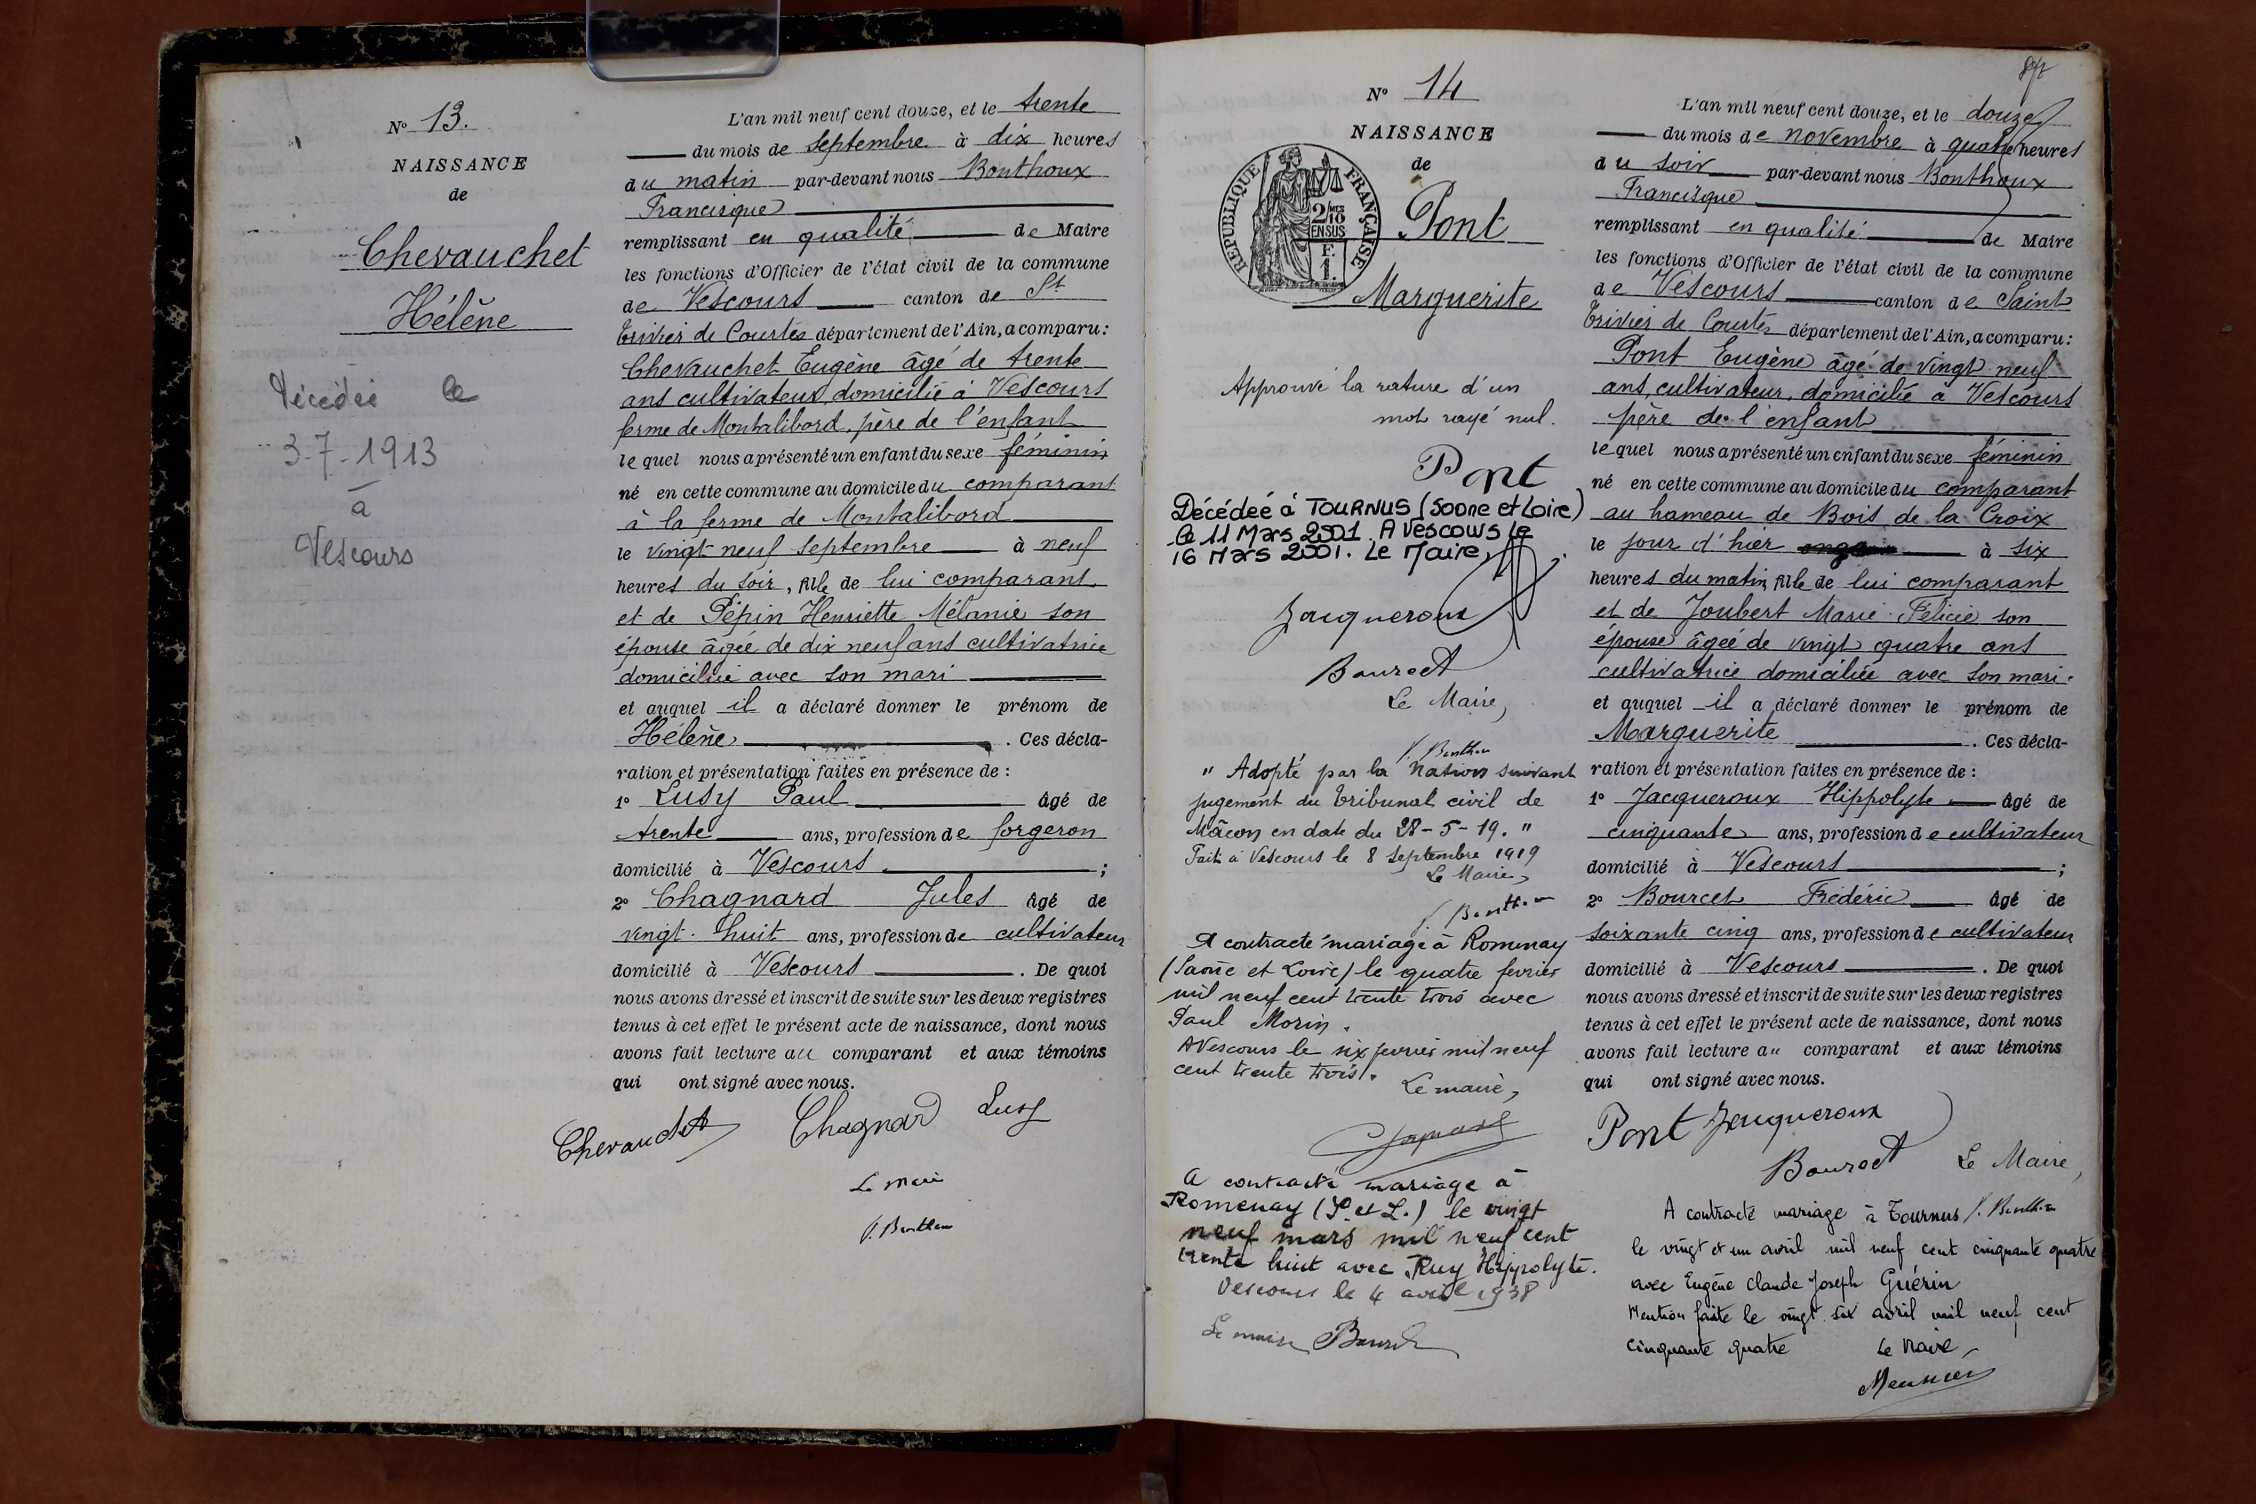 N° 13.
NAISSANCE
de
Chevauchet
Hélène
Décédée le
3-7-1913
à
Vescours
L'an mil neuf cent douze, et le trente
du mois de septembre à dix heures
du matin par-devant nous Bonthoux
Francisque
remplissant en qualité de Maire
les fonctions d'Officier de l'état civil de la commune
de Vescours canton de St
Trivier de Courtes département de l'Ain, a comparu :
Chevauchet Eugène âgé de trente
ans cultivateur, domicilié à Vescours
ferme de Montalibord, père de l'enfant
lequel nous a présenté un enfant du sexe féminin
né en cette commune au domicile du comparant
à la ferme de Montalibord
le vingt neuf septembre à neuf
heures du soir, fille de lui comparant
et de Pépin Henriette Mélanie son
épouse âgée de dix neuf ans cultivatrice
domiciliée avec son mari
et auquel il a déclaré donner le prénom de
Hélène . Ces décla-
ration et présentation faites en présence de :
1° Lusy Paul âgé de
trente ans, profession de forgeron
domicilié à Vescours ;
2° Chagnard Jules âgé de
vingt-huit ans, profession de cultivateur
domicilié à Vescours . De quoi
nous avons dressé et inscrit de suite sur les deux registres
tenus à cet effet le présent acte de naissance, dont nous
avons fait lecture au comparant et aux témoins
qui ont signé avec nous.
Chevauchet Chagnard Lusy
Le Maire
F. Bonthoux
N° 14
NAISSANCE
de
RÉPUBLIQUE FRANÇAISE
2/10 MES
EN SUS
F.
1.
Pont
Marguerite
Approuvé la rature d'un
mot rayé nul.
Pont
Décédée à TOURNUS (Saone et Loire)
le 11 Mars 2001. A Vescours le
16 Mars 2001. Le Maire,
Jacqueroux
Bourcet
Le Maire,
F. Bonthoux
" Adopté par la Nation suivant
jugement du tribunal civil de
Mâcon en date du 28-5-19. "
Fait à Vescours le 8 septembre 1919
Le Maire,
F. Bonthoux
A contracté mariage à Romenay
(Saône et Loire) le quatre février
mil neuf cent trente trois avec
Paul Morin.
A Vescours le six fevrier mil neuf
cent trente trois.
Le maire,
A contracté mariage à
Romenay (S. et L.) le vingt
neuf mars mil neuf cent
trente huit avec Ruy Hippolyte.
Vescours le 4 avril 1938
Le maire
L'an mil neuf cent douze, et le douze
du mois de novembre à quatre heures
du soir par-devant nous Bonthoux
Francisque
remplissant en qualité de Maire
les fonctions d'Officier de l'état civil de la commune
de Vescours canton de Saint
Trivier de Courtes département de l'Ain, a comparu :
Pont Eugène âgé de vingt neuf
ans, cultivateur, domicilié à Vescours
père de l'enfant
lequel nous a présenté un enfant du sexe féminin
né en cette commune au domicile du comparant
au hameau de Bois de la Croix
le jour d'hier à six
heures du matin, fille de lui comparant
et de Joubert Marie Félicie son
épouse âgée de vingt quatre ans
cultivatrice domiciliée avec son mari.
et auquel il a déclaré donner le prénom de
Marguerite . Ces décla-
ration et présentation faites en présence de :
1° Jacqueroux Hippolyte âgé de
cinquante ans, profession de cultivateur
domicilié à Vescours ;
2° Bourcet Frédéric âgé de
soixante cinq ans, profession de cultivateur
domicilié à Vescours . De quoi
nous avons dressé et inscrit de suite sur les deux registres
tenus à cet effet le présent acte de naissance, dont nous
avons fait lecture au comparant et aux témoins
qui ont signé avec nous.
Pont Jacqueroux
Bourcet Le Maire,
F. Bonthoux
A contracté mariage à Tournus
le vingt et un avril mil neuf cent cinquante quatre
avec Eugène Claude Joseph Guérin
Mention faite le vingt six avril mil neuf cent
cinquante quatre Le Maire
Meunier